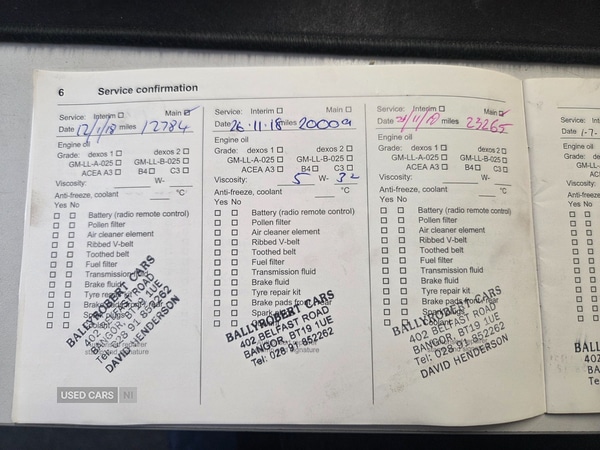 6 Service confirmation
Service: Interim Main
Date 12/1/18 miles 12784
Engine oil
Grade: dexos 1 dexos 2
GM-LL-A-025 GM-LL-B-025
ACEA A3 B4 C3
Viscosity: W-
Anti-freeze, coolant °C
Yes No
Battery (radio remote control)
Pollen filter
Air cleaner element
Ribbed V-belt
Toothed belt
Fuel filter
Transmission fluid
Brake fluid
Tyre repair kit
BALLYROBERT CARS
402 BELFAST ROAD
BANGOR, BT19 1UE
Tel: 028 91 852262
DAVID HENDERSON
Service: Interim Main
Date 26.11.18 miles 20009
Engine oil
Grade: dexos 1 dexos 2
GM-LL-A-025 GM-LL-B-025
ACEA A3 B4 C3
Viscosity: 5 W- 32
Anti-freeze, coolant °C
Yes No
Battery (radio remote control)
Pollen filter
Air cleaner element
Ribbed V-belt
Toothed belt
Fuel filter
Transmission fluid
Brake fluid
Tyre repair kit
Brake pads front/rear
BALLYROBERT CARS
402 BELFAST ROAD
BANGOR, BT19 1UE
Tel: 028 91 852262
Service: Interim Main
Date miles 23265
Engine oil
Grade: dexos 1 dexos 2
GM-LL-A-025 GM-LL-B-025
ACEA A3 B4 C3
Viscosity: W-
Anti-freeze, coolant °C
Yes No
Battery (radio remote control)
Pollen filter
Air cleaner element
Ribbed V-belt
Toothed belt
Fuel filter
Transmission fluid
Brake fluid
Tyre repair kit
Brake pads front/rear
BALLYROBERT CARS
402 BELFAST ROAD
BANGOR, BT19 1UE
Tel: 028 91 852262
DAVID HENDERSON
USED CARS NI